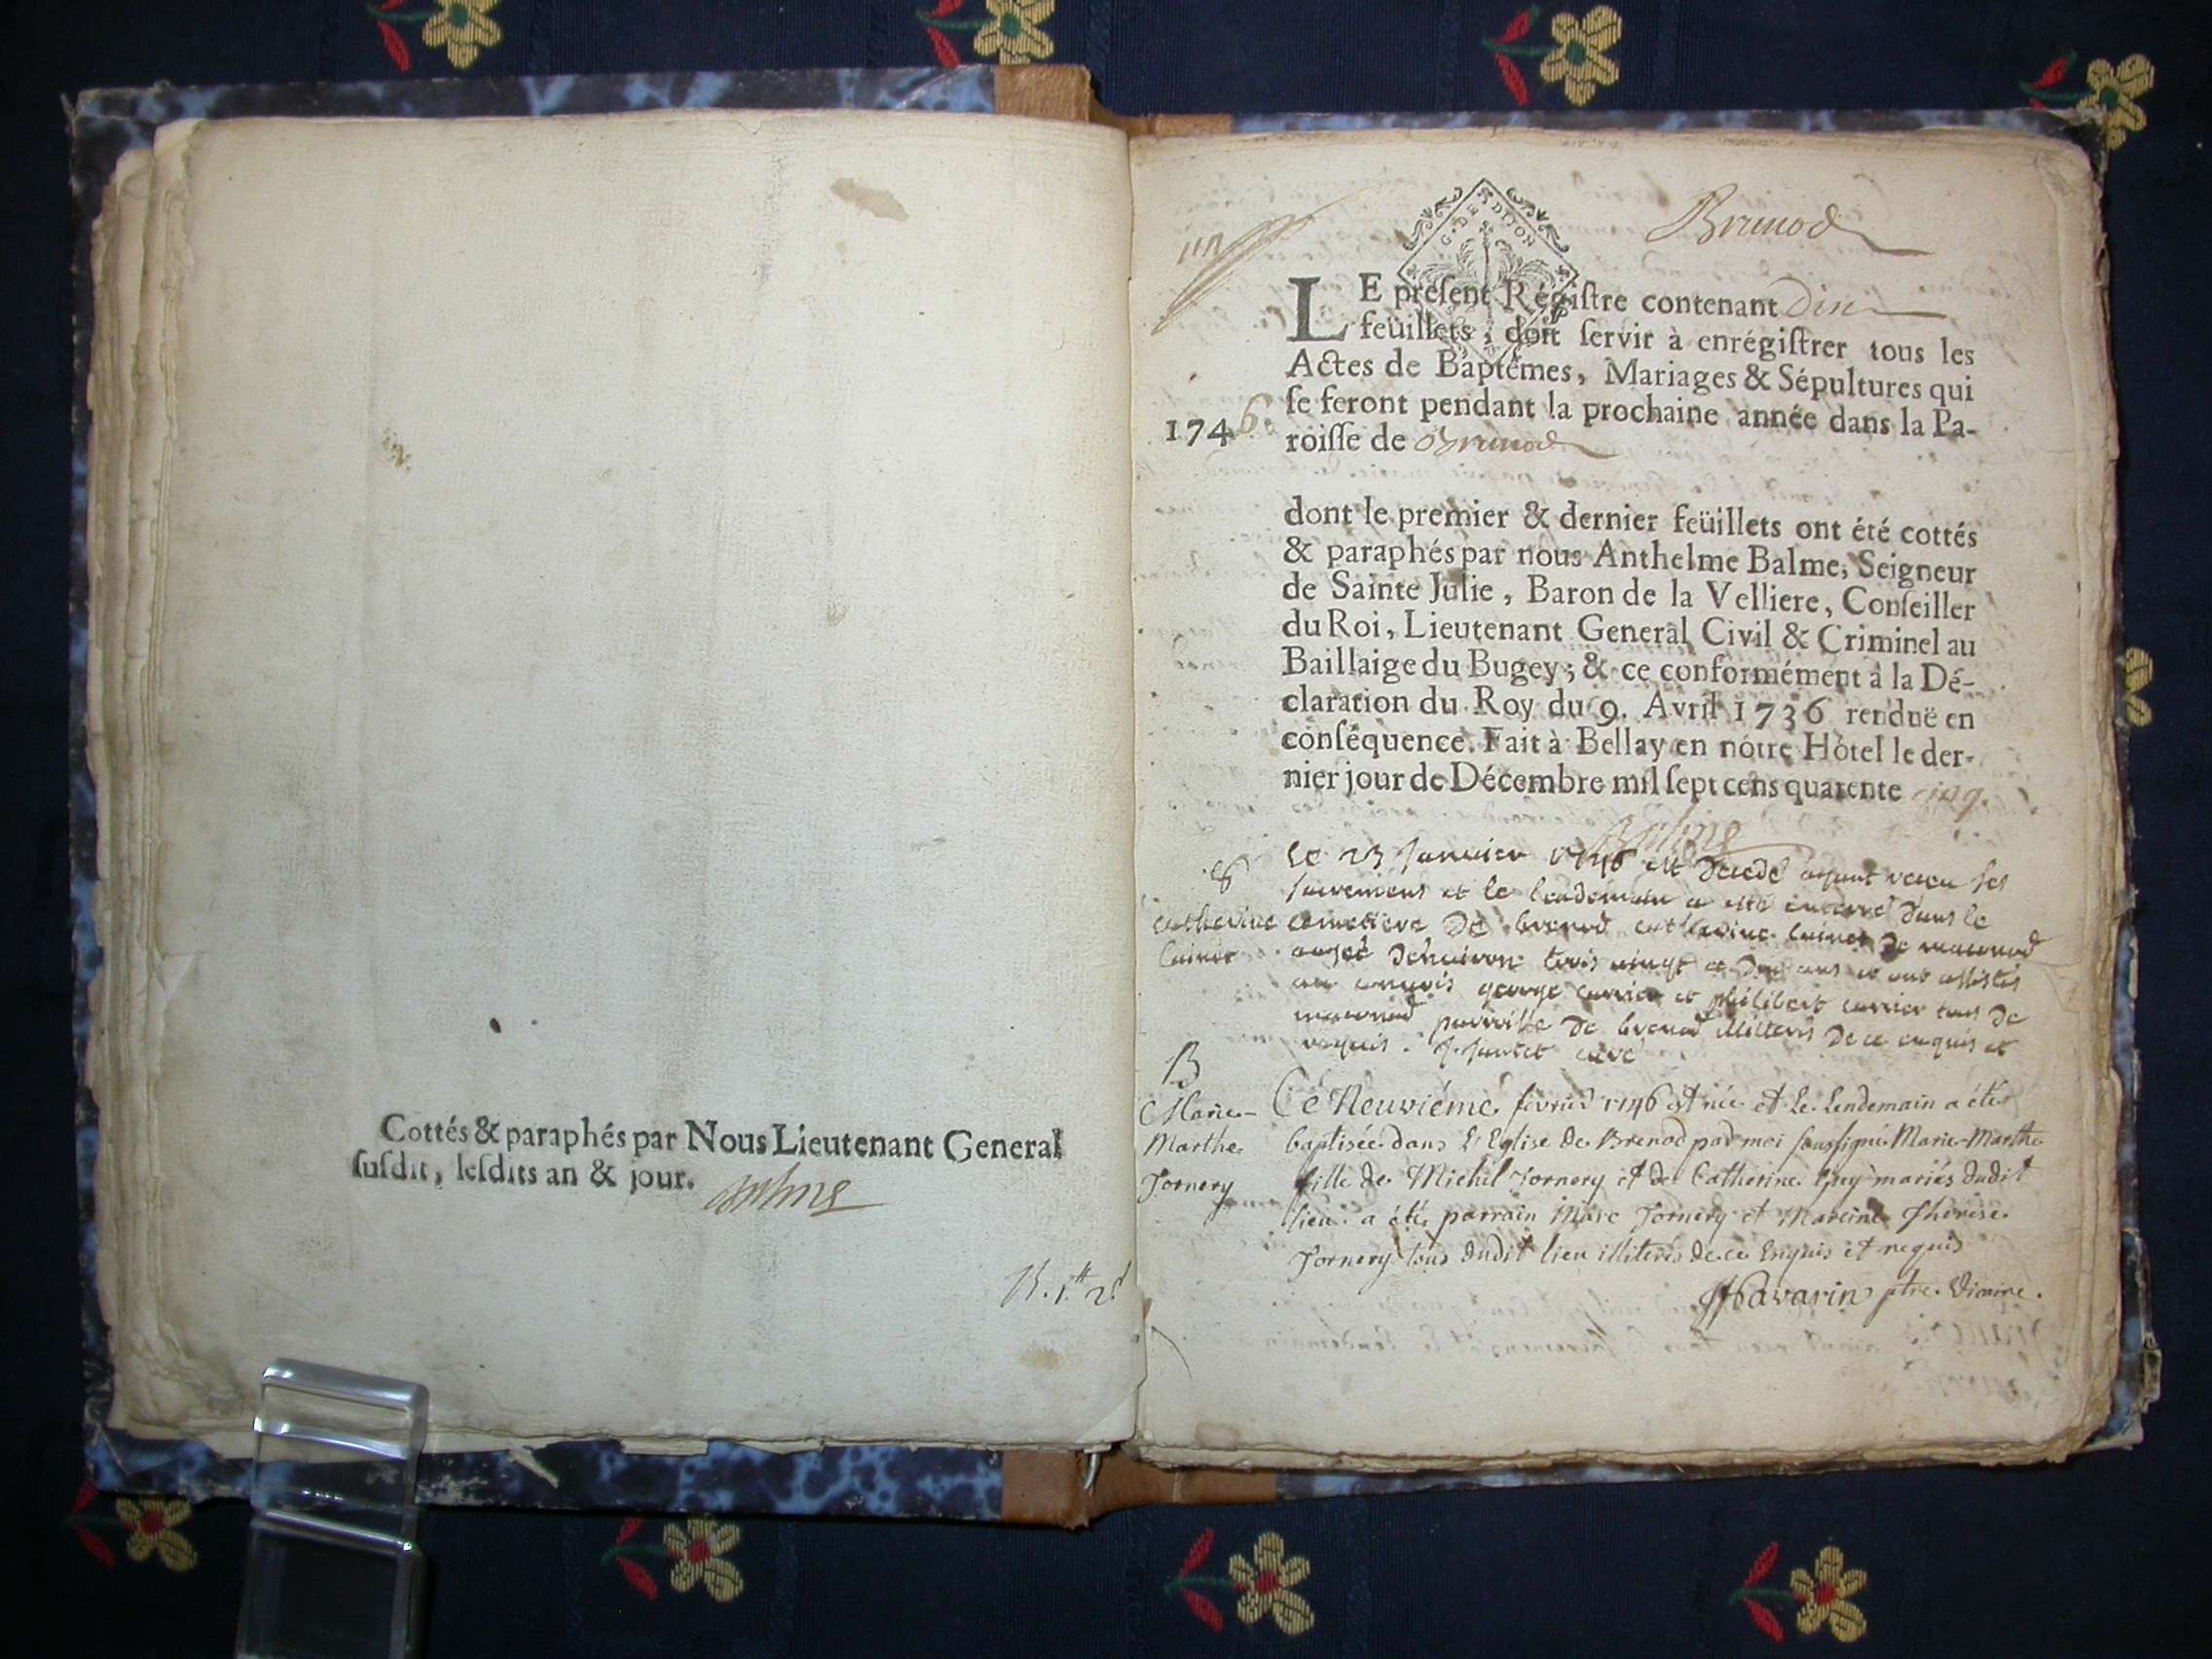 Cottés & paraphés par Nous Lieutenant General
ſuſdit, leſdits an & jour.
Balme
B. 1.tt 2.d
G. DE DIJON
Brenod
LE préſent Régiſtre contenant Dix
feüillets, doit ſervir à enrégiſtrer tous les
Actes de Baptêmes, Mariages & Sépultures qui
ſe feront pendant la prochaine année dans la Pa-
1746.
roiſſe de Brenod
dont le premier & dernier feüillets ont été cottés
& paraphés par nous Anthelme Balme, Seigneur
de Sainte Julie, Baron de la Velliere, Conſeiller
du Roi, Lieutenant General Civil & Criminel au
Baillaige du Bugey; & ce conformément à la Dé-
claration du Roy du 9. Avril 1736 renduë en
conſéquence. Fait à Bellay en nótre Hôtel le der-
nier jour de Décembre mil ſept cens quarente cinq.
Balme
S
catherine
le 23 janvier 1746 est decede ayant receu ses
sacremens et le lendemain a esté enterré dans le
cimetiere de brenod catherine de maconod
agée d'environ trois vingt et dix ans et ont assistés
au convois george carrier et philibert carrier tous de
maconod parroisse de brenod illiterés de ce enquis et
requis. curé
B
Marie-
Marthe
Jornery
Le Neuviéme fevrier 1746 est née et le lendemain a été
baptisée dans L'Eglise de Brenod par moi soussigné Marie-Marthe
fille de Michel Jornery et de Catherine mariés dudit
lieu. a été parrain Marc Jornery et Mareine Thérése
Jornery tous dudit lieu illiterés de ce Enquis et requis
Savarin ptre. Vicaire.